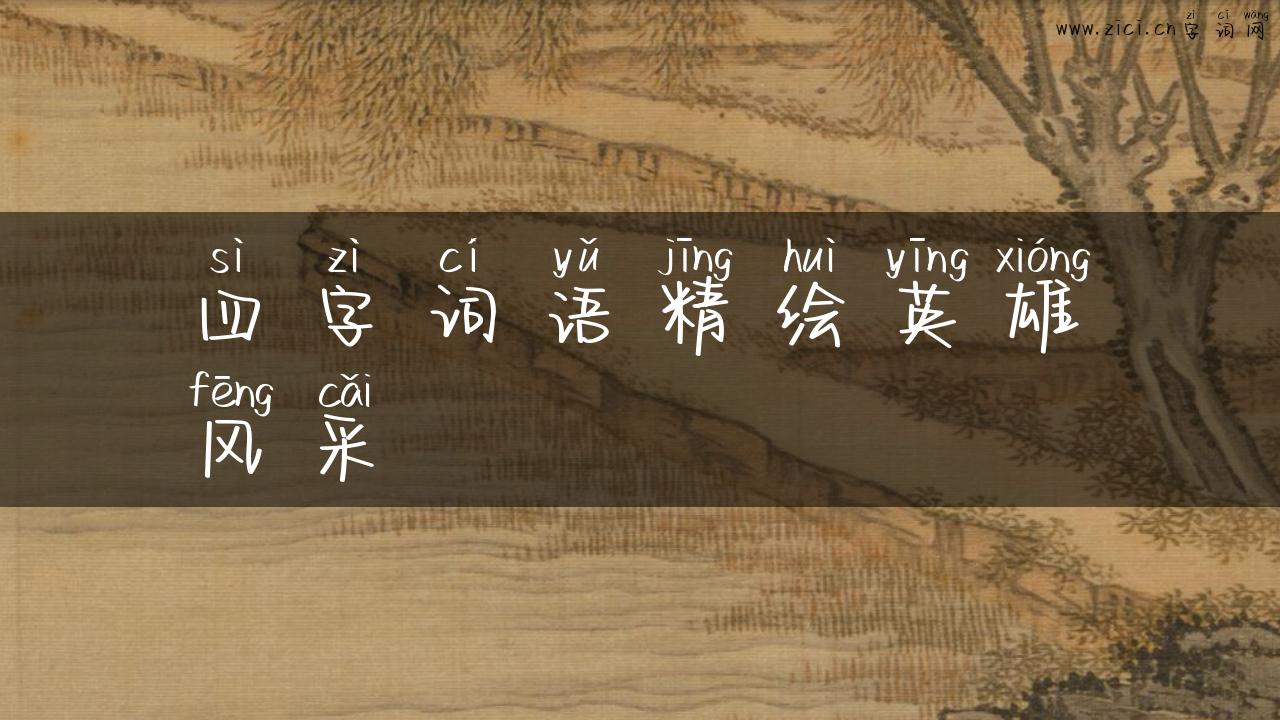 zì cí wǎng
www.zici.cn字词网
sì zì cí yǔ jīng huì yīng xióng
四字词语精绘英雄
fēng cǎi
风采